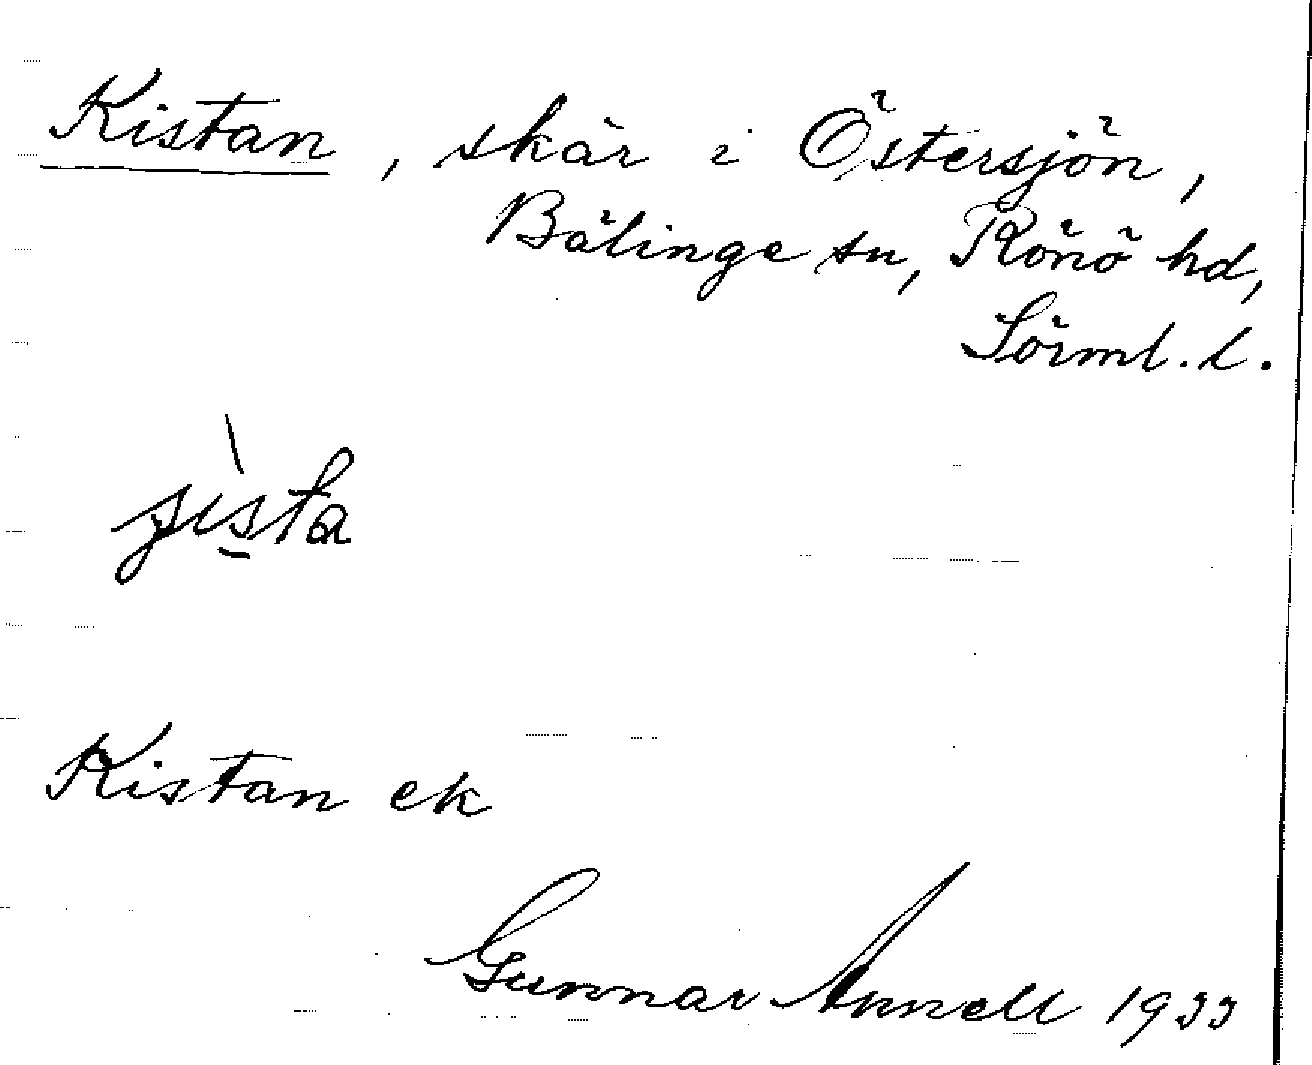 Kistan, skär i Östersjön,
Bälinge sn, Rönö hd,
Sörml. l.
Kistan ek
Gunnar Annell 1933